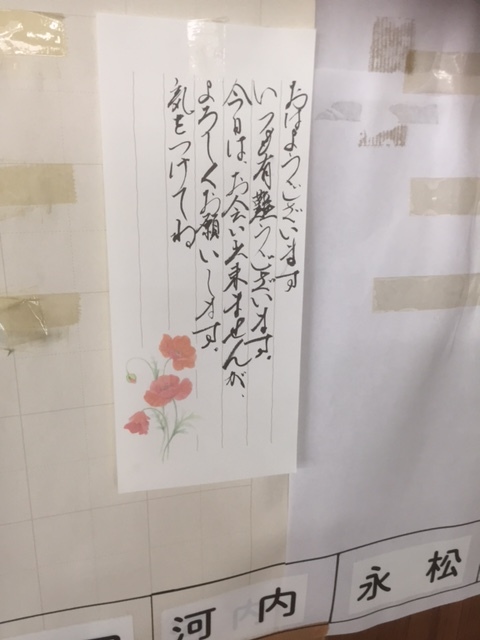 おはようございます
いつも有難うございます。
今日は、お会い出来ませんが、
よろしくお願いします。
気をつけてね
河内
永松